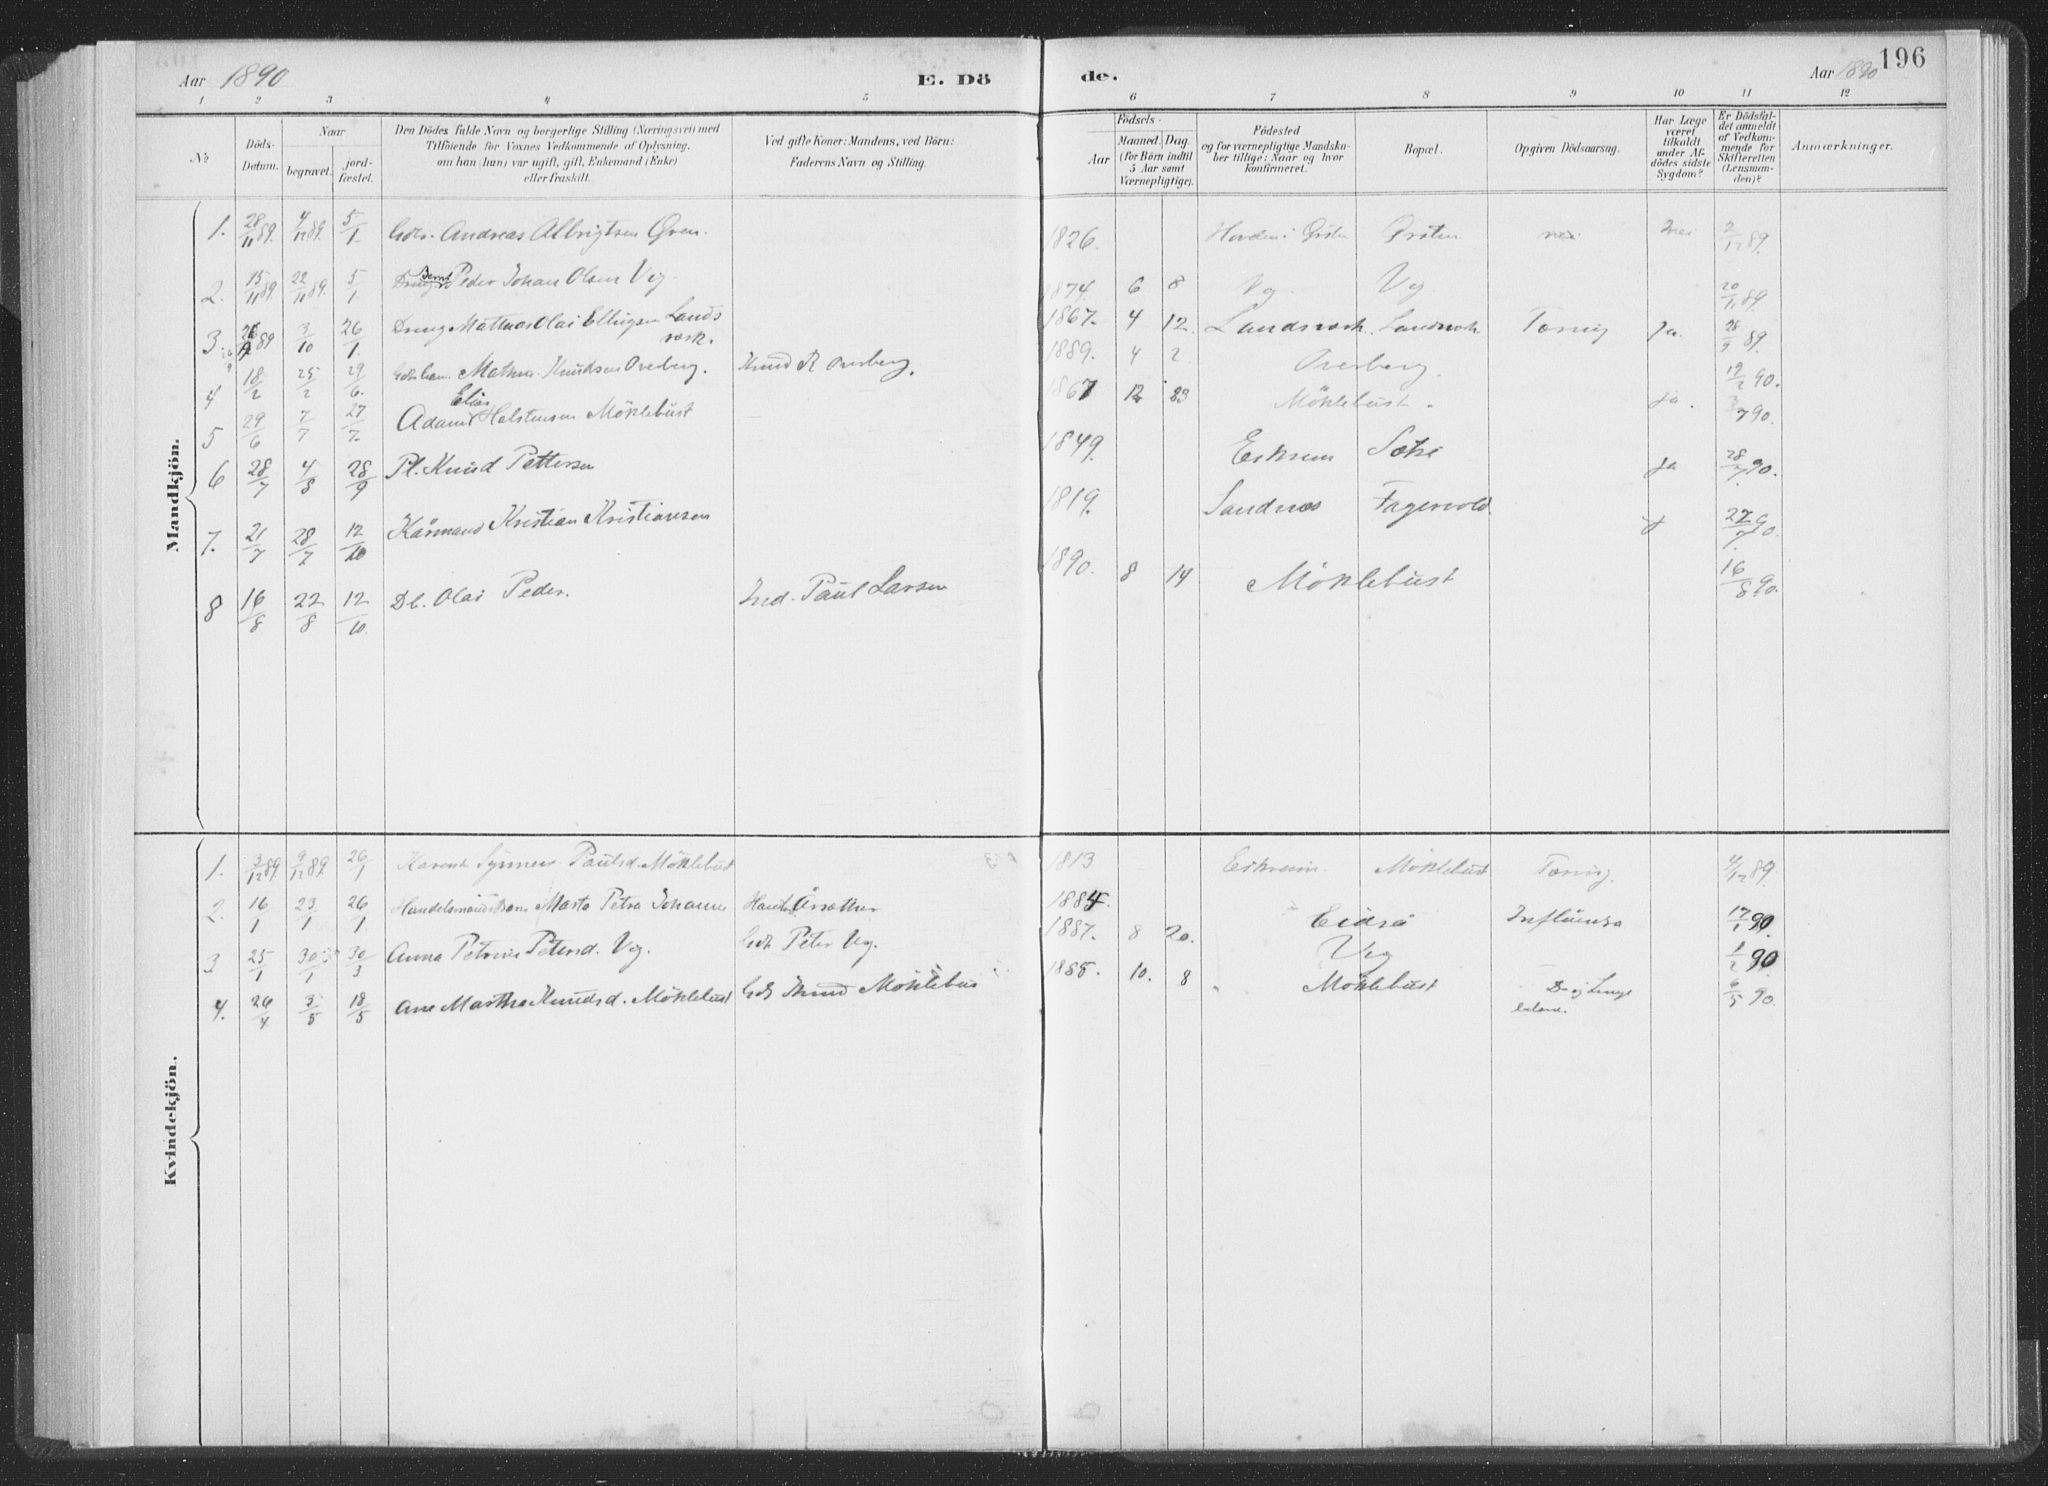 196
Aar 1890
E. Döde.
Aar 1890
1 2 3 4 5 6 7 8 9 10 11 12
No
Döds-Datum.
Naar
begravet.
jordfæstet.
Den Dödes fulde Navn og borgerlige Stilling (Næringsvei) med
Tilföiende for Voxnes Vedkommende af Oplysning,
om han (hun) var ugift, gift, Enkemand (Enke)
eller fraskilt.
Ved gifte Koner: Mandens, ved Börn:
Faderens Navn og Stilling.
Födsels-
Aar
Maaned. Dag.
(for Börn indtil
5 Aar samt
Værnepligtige).
Födested
og for værnepligtige Mandskaber tillige: Naar og hvor
konfirmeret.
Bopæl.
Opgiven Dödsaarsag.
Har Læge
været
tilkaldt
under Afdödes sidste
Sygdom?
Er Dödsfaldet anmeldt
af Vedkommende for
Skifteretten
(Lensmanden)?
Anmærkninger.
Mandkjön.
1. 28/11 89. 4/12 89. 5/1. Andreas Albrigtsen Øren. 1826. 2/12 89.
2. 15/11 89. 22/11 89. 5/1 Dreng Bernt Peder Johan Olsen Vig. 1874. 6 8 Vg. Vg. 20/11 89
3 3/10 26/1. Dreng Mathias Olai Ellingsen Landsværk. 1867. 4 12. Landsværk. Landsværk Tæring Ja. 28/9 89.
4 18/2 25/2 29/6. Knudsen Overberg. Knud R Overberg. 1889. 4 2. Overberg. 19/2 90.
5 29/6 7/7 27/7. Adam Elias Holstensen Möklebust 1867 12 23 Möklebust. Ja. 90.
6 28/7 4/8 28/9 Pl. Knud Pettersen 1849. Eskrem Ja 28/7 90.
7. 21/7 28/7 12/10 Kårmand Kristian Kristiansen 1819. Sandnes Fagervold. J 90.
8 16/8 22/8 12/10. Db. Olai Peder. Ind. Paul Larsen 1890. 8 14 Möklebust 16/8 90.
Kvindekjön.
1. 3/12 89. 9/12 89. 26/1 Synnes Paulsd. Möklebust 1813 Eskrem. Möklebust Tæring. 4/12 89.
2. 16/1 23/1 26/1 Marta Petra Johanne 1884. Eidså Influensa 17/1 90.
3 25/1 30/1 30/3 Anna Petrine Petersd. Vig. Peter Vig. 1887. 8 20. Vig 1/2 90
4. 26/4 3/5 18/5 Ane Martha Knudsd. Möklebust Knud Möklebus 1888. 10. 8 Möklebust 6/5 90.